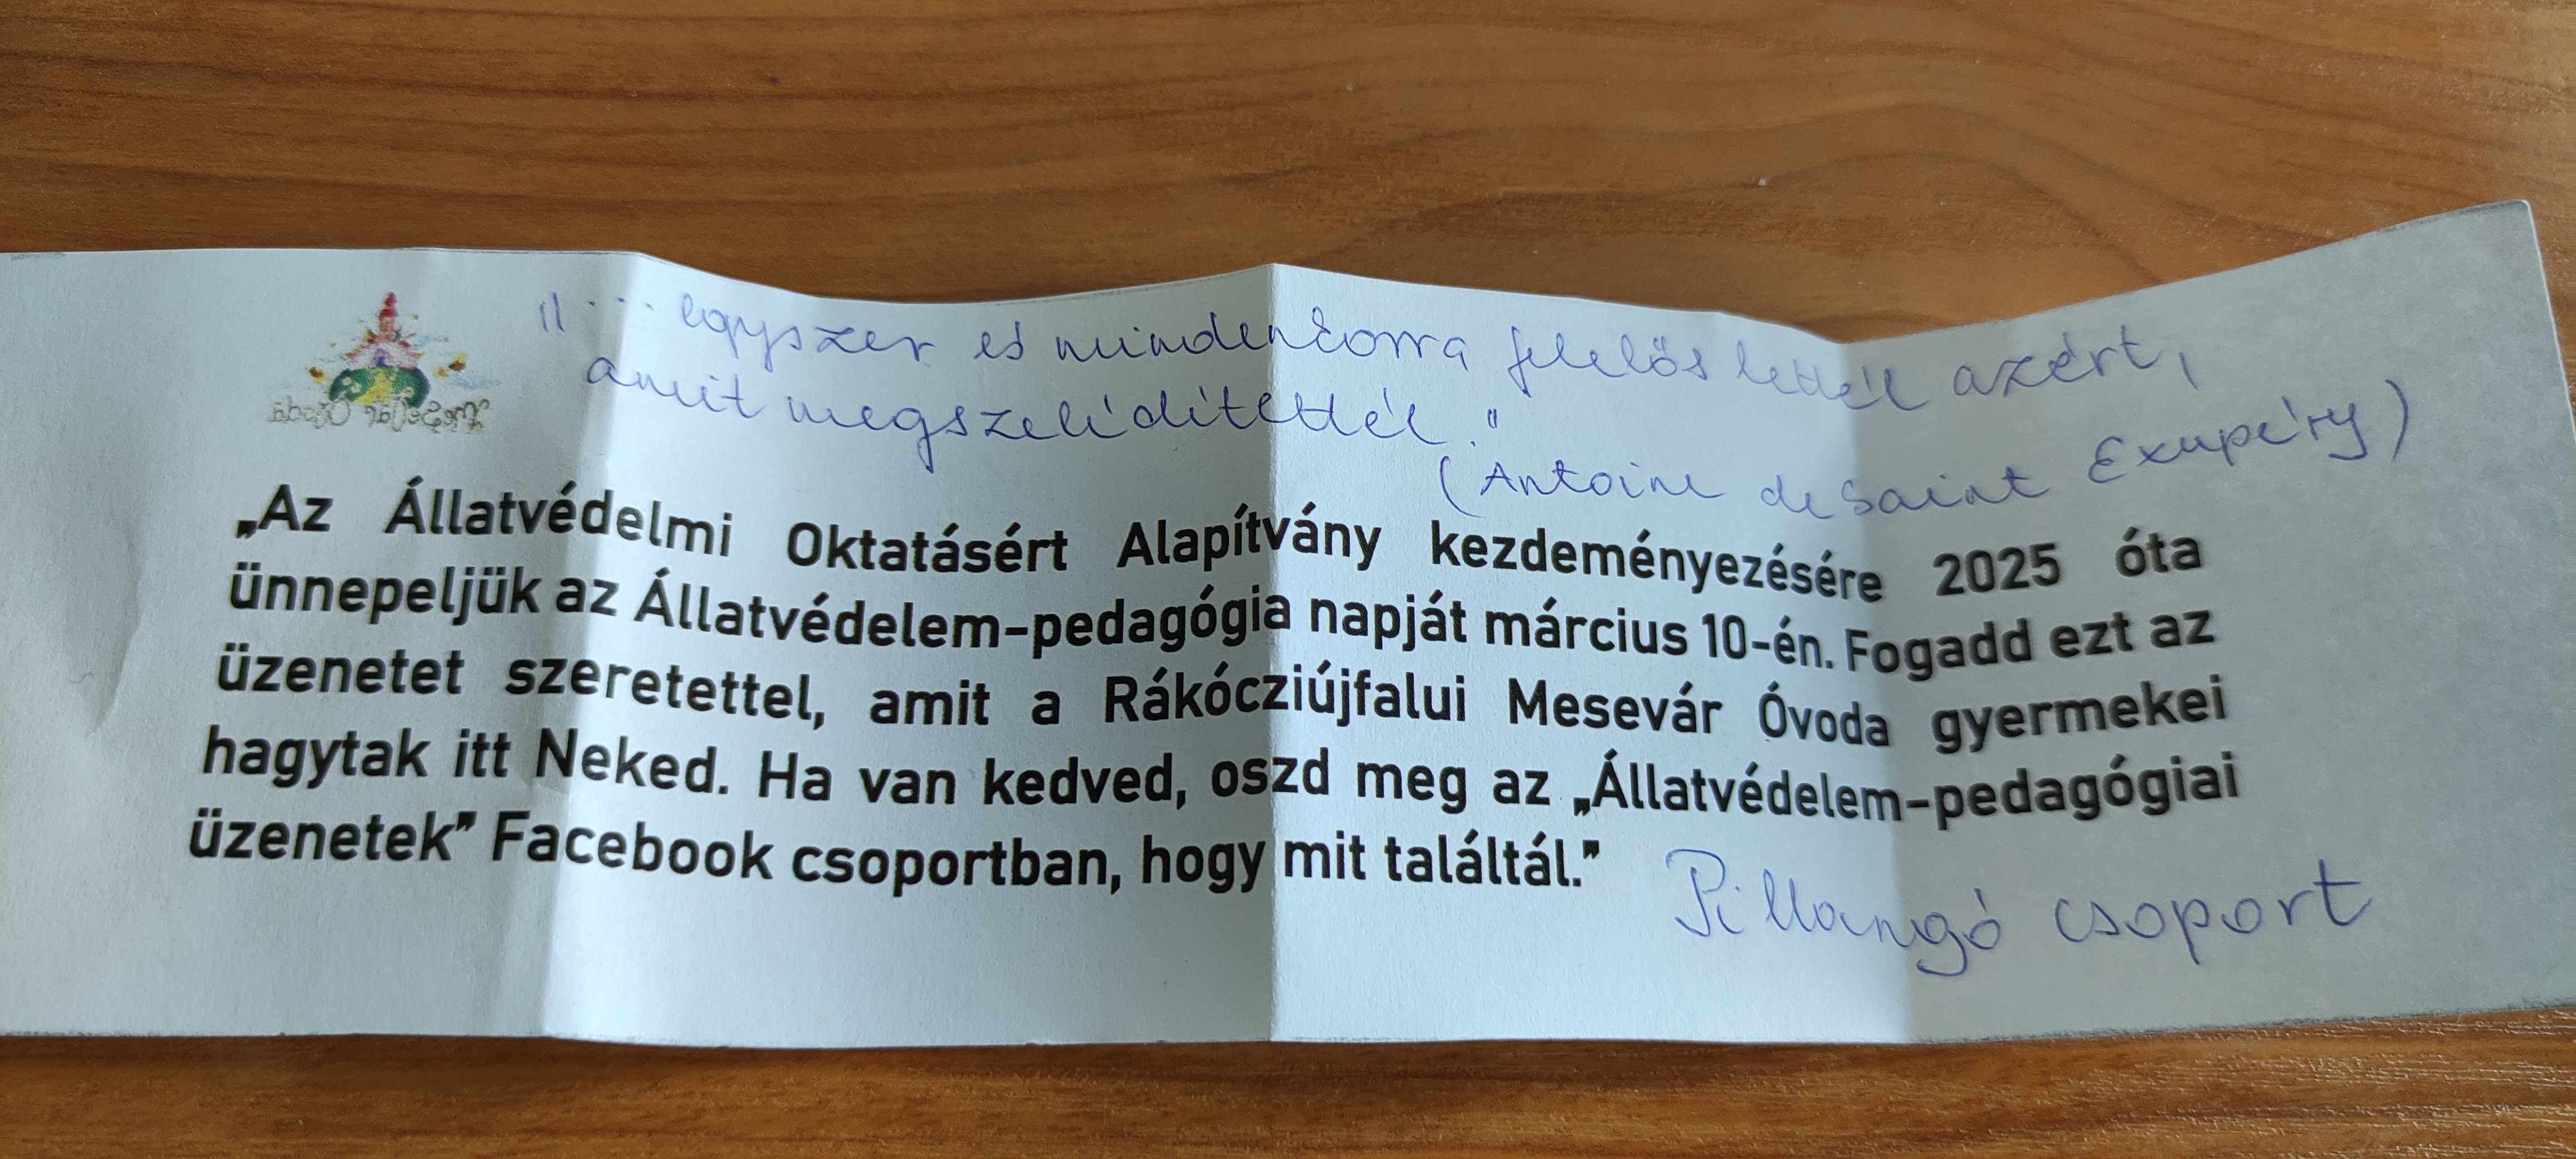 "... egyszer és mindenkorra felelős lettél azért,
amit megszelídítettél."
(Antoine de Saint Exupéry)
Mesevár Óvoda
„Az Állatvédelmi Oktatásért Alapítvány kezdeményezésére 2025 óta
ünnepeljük az Állatvédelem-pedagógia napját március 10-én. Fogadd ezt az
üzenetet szeretettel, amit a Rákócziújfalui Mesevár Óvoda gyermekei
hagytak itt Neked. Ha van kedved, oszd meg az „Állatvédelem-pedagógiai
üzenetek” Facebook csoportban, hogy mit találtál.”
Pillangó csoport